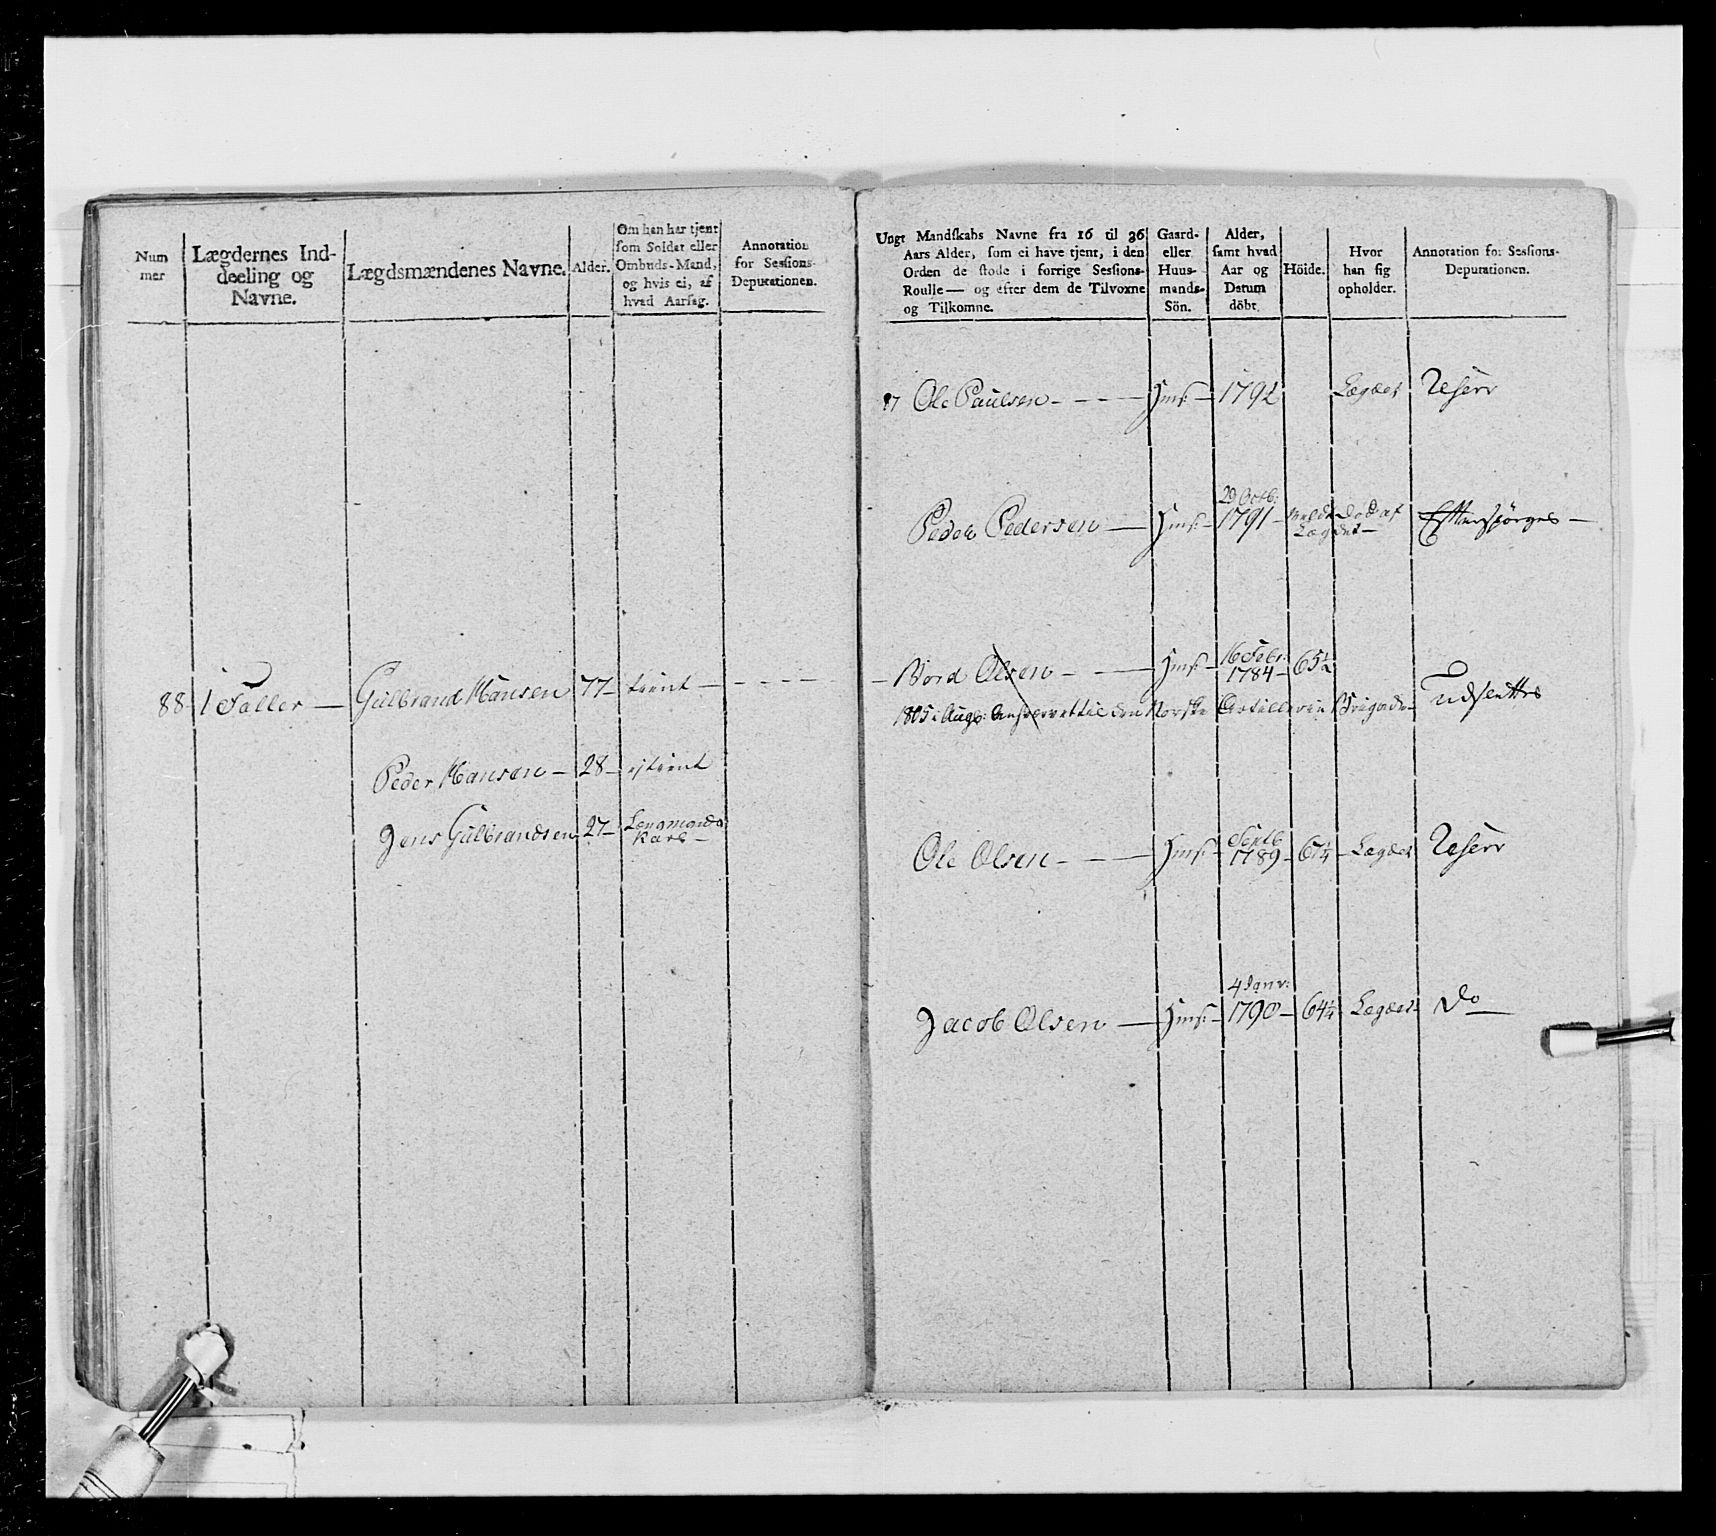 Num
mer
Lægdernes Ind-
deeling og
Navne.
Lægdsmændenes Navne.
Alder.
Om han har tjent
som Soldat eller
Ombuds-Mand,
og hvis ei, af
hvad Aarsag.
Annotation
for Sessions-
Deputationen.
88 1 Faller — Gulbrand Hansen 77 — tient —
Peder Hansen — 28 — ej tient
Jens Gulbrandsen 27 — Longmands
Karl —
Ungt Mandskabs Navne fra 16 til 36
Aars Alder, som ei have tjent, i den
Orden de stode i forrige Sessions-
Roulle — og efter dem de Tilvoxne
og Tilkomne.
Gaard-
eller
Huus-
mands-
Sön.
Alder,
samt hvad
Aar og
Datum
döbt.
Höide.
Hvor
han sig
opholder.
Annotation for Sessions-
Deputationen.
87 Ole Paulsen — Hms: — 1792 Lægdet Reserv
29 Octb:
Peder Pedersen — Hms: — 1791 — meldt död af Efterspörges —
Lægdet —
16 Febr:
Olsen — Hms: — 1784 — 65½
1805 i Aug: til den Norske Artillerie Brigade — Udsettes
Septb
Ole Olsen — Hms: — 1789 — 67¼ — Lægdet Reserv
4 Janv:
Jacob Olsen — Hms: — 1790 — 64¼ Lægdet — Do —